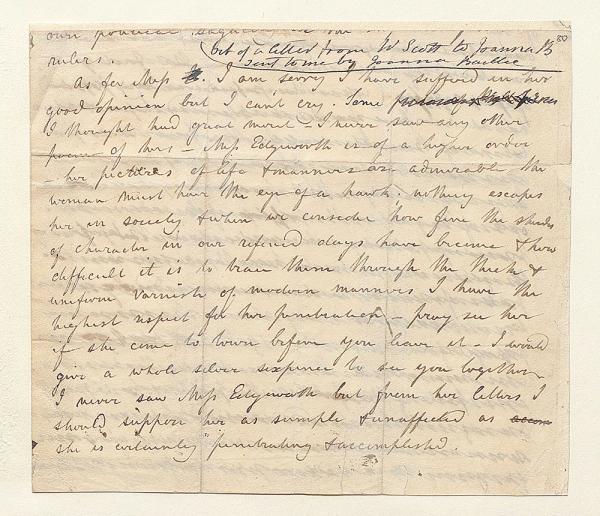 own political
bit of a letter from W Scott to Joanna B
rulers.
sent to me by Joanna Baillie
As for Miss I am sorry I have suffered in her
good opinion but I cant cry. Some
I thought had great merit - I never saw any other
poems of hers - Miss Edgeworth is of a higher order
- her pictures of life & manners are admirable the
woman must have the eye of a hawk. nothing escapes
her in society & when we consider how fine the shades
of character in our refined days have become & how
difficult it is to trace them through the thick &
uniform varnish of modern manners I have the
highest respect for her penetration - pray see her
if she come to town before you leave it - I would
give a whole silver sixpence to see you together
I never saw Miss Edgeworth but from her letters I
should suppose her as simple & unaffected as accom
she is certainly penetrating & accomplished.